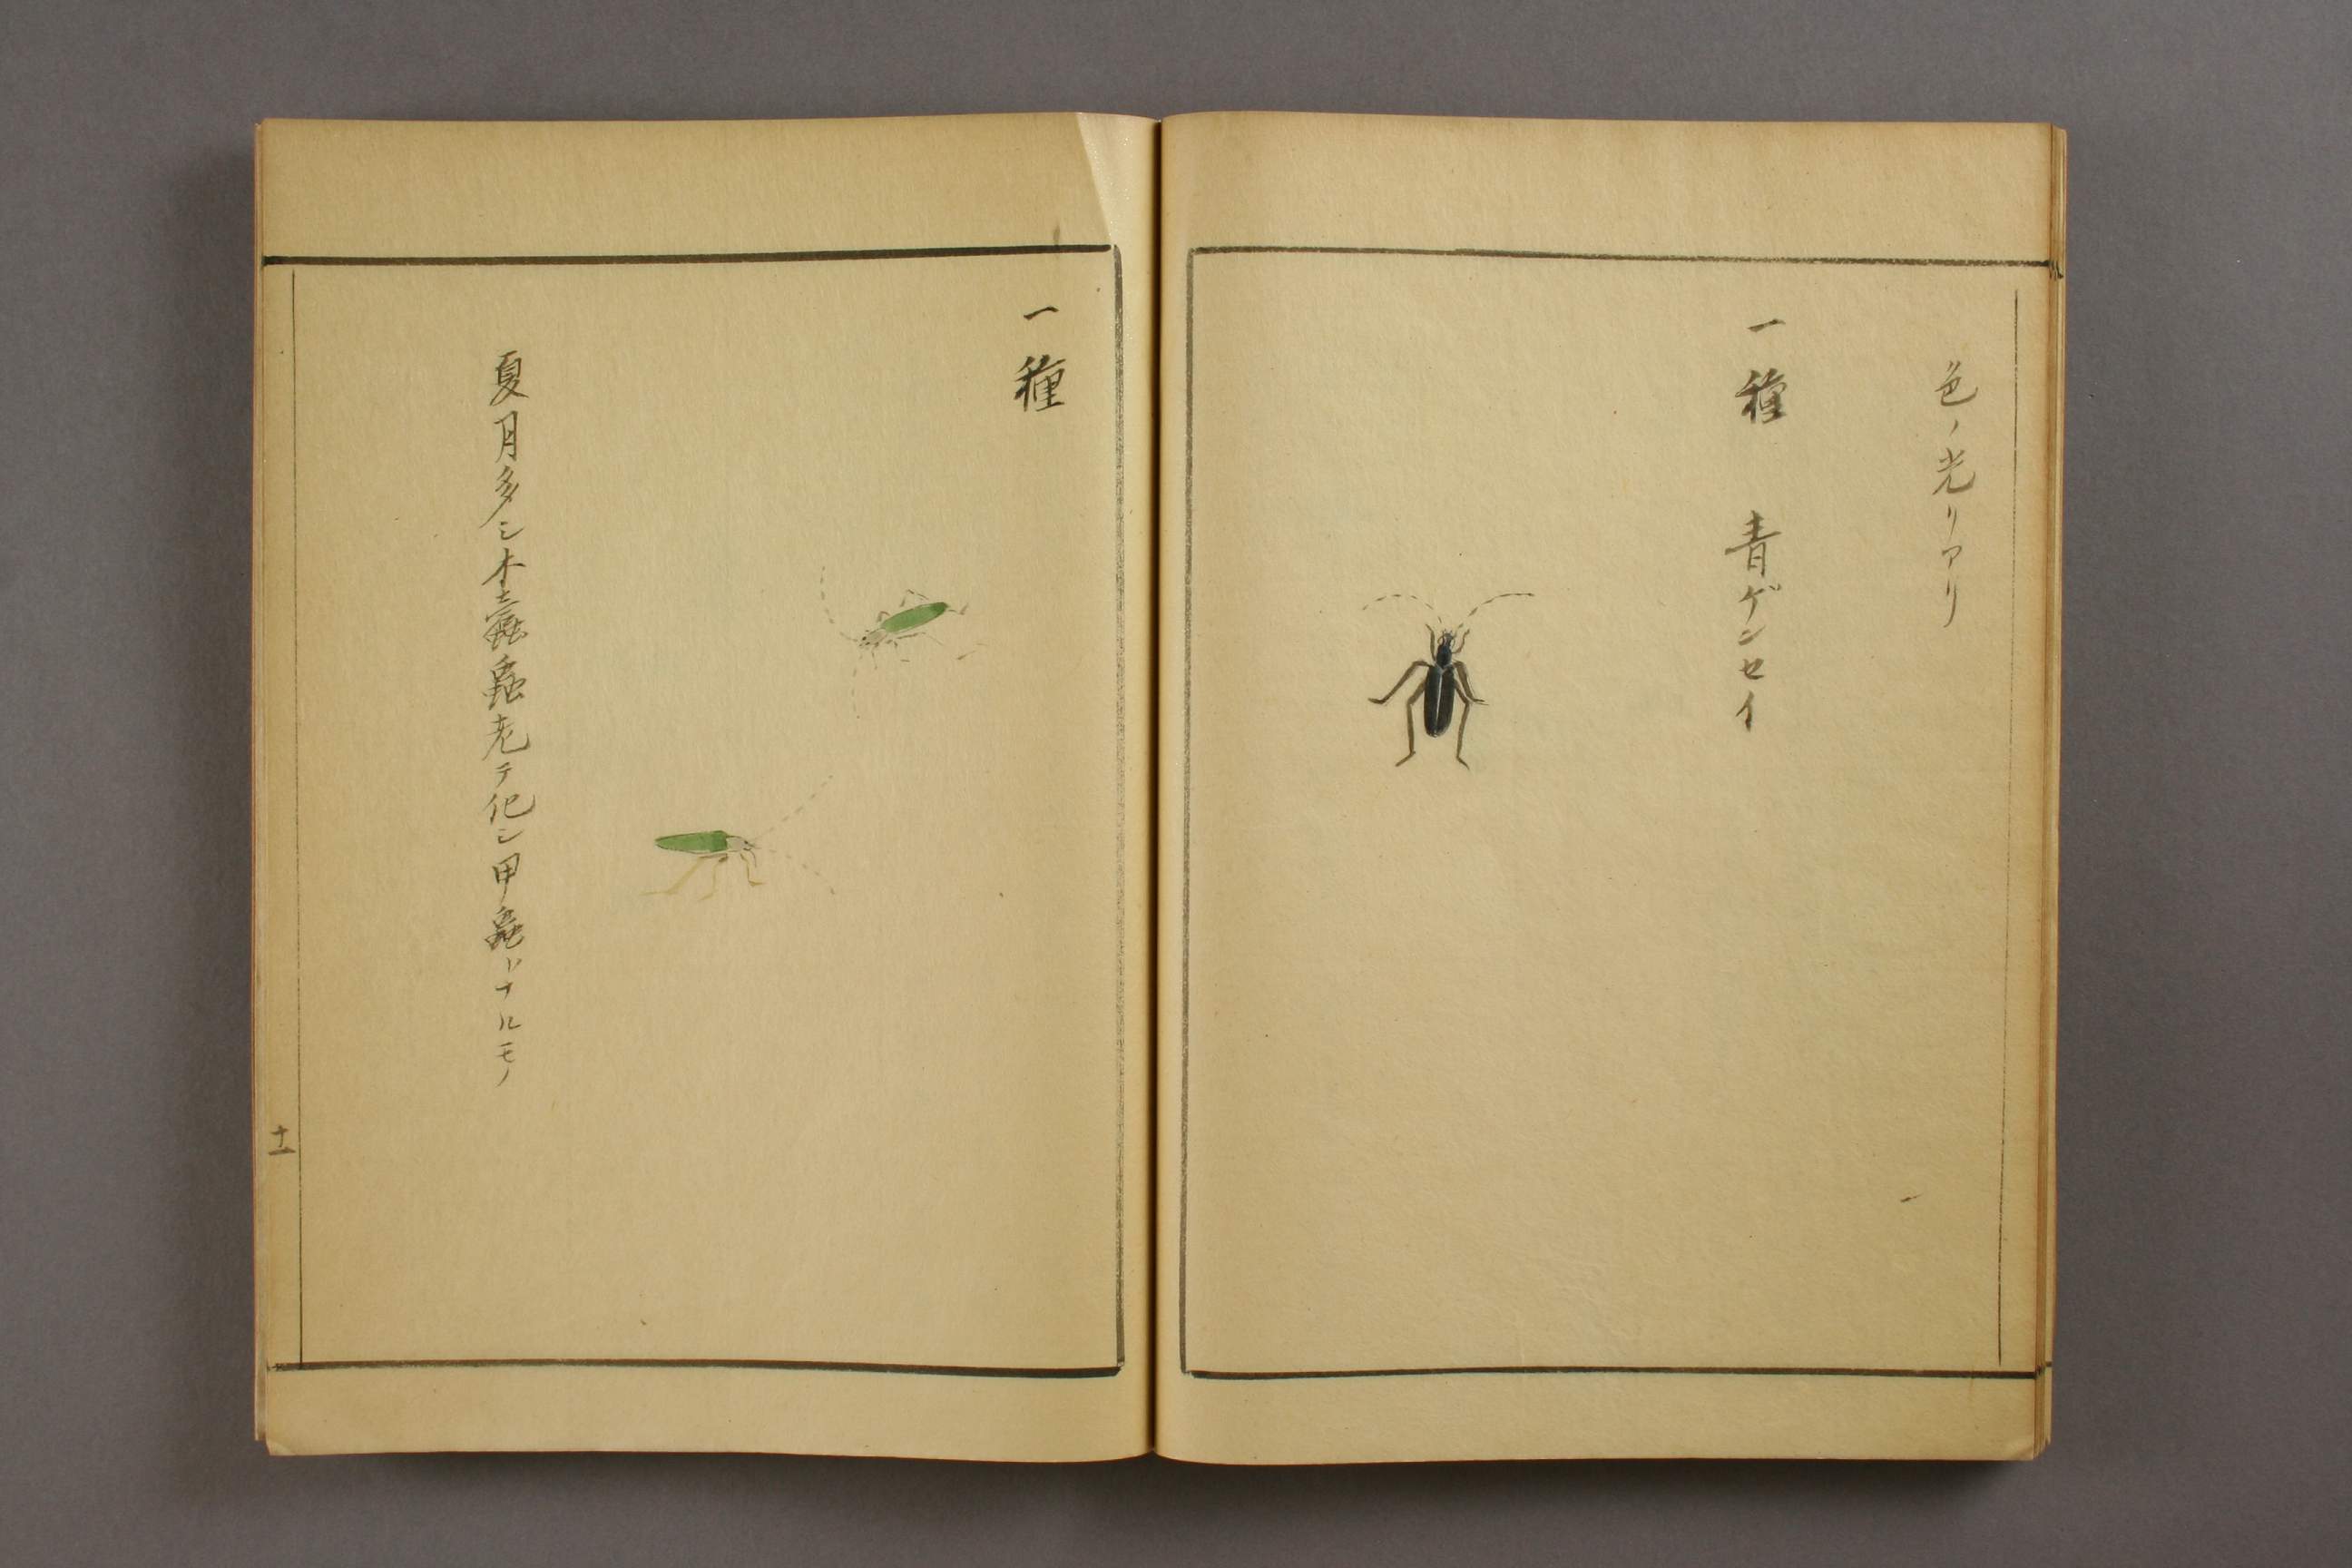 色ノ光リアリ
一種 青ゲンセイ
一種
夏月多シ木蠹蟲老テ化シ甲蟲トナルモノ
十一